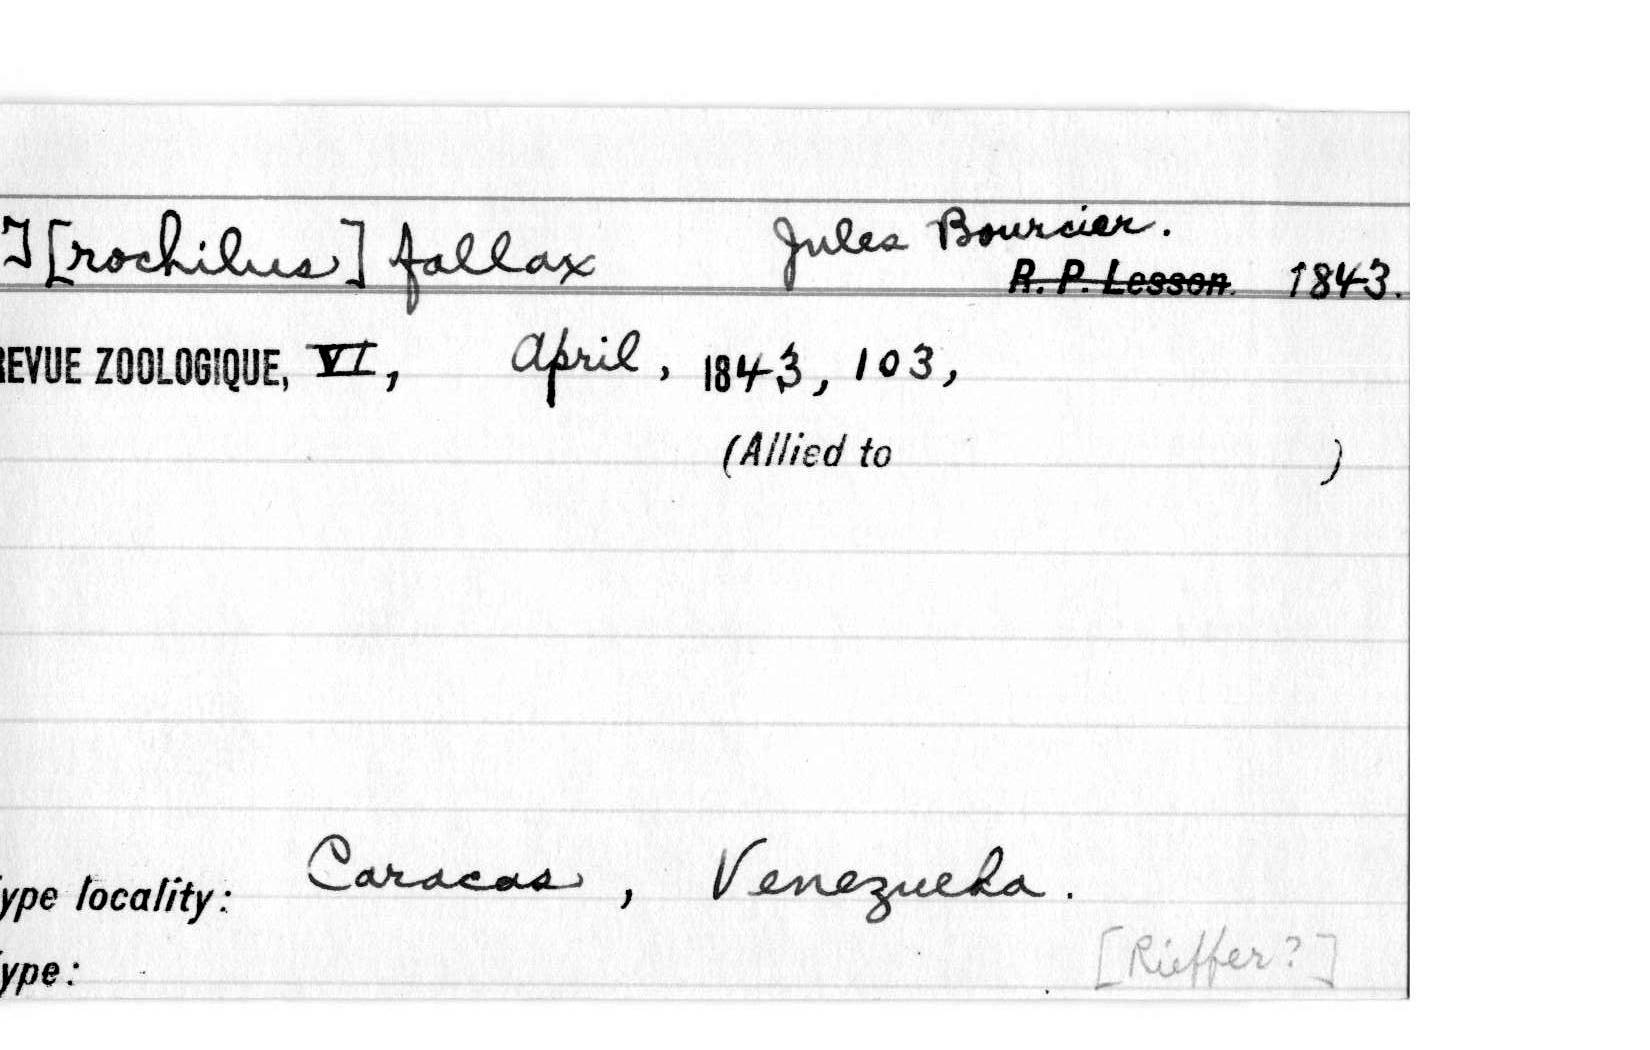 T[rochilus] fallax Jules Bourcier.
R. P. Lesson. 1843.
REVUE ZOOLOGIQUE, VI, April, 1843, 103,
(Allied to )
ype locality: Caracas, Venezuela.
[Rieffer?]
ype: